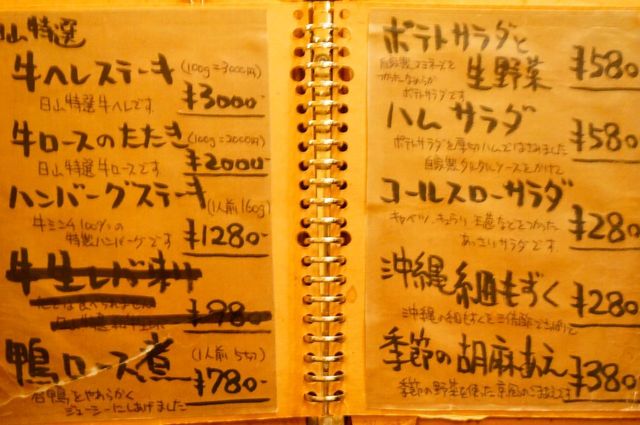 日山特選
牛ヘレステーキ (100g=3000円)
日山特選牛ヘレです ¥3000-
牛ロースのたたき (100g=2000円)
日山特選牛ロースです ¥2000-
ハンバーグステーキ (1人前160g)
牛ミンチ100%の
特製ハンバーグです ¥1280-
牛生レバ刺し
¥980-
鴨ロース煮 (1人前5切)
合鴨をやわらかく
ジューシーにしあげました ¥780-
ポテトサラダと
生野菜 ¥580-
自家製マヨネーズを
つかったなめらか
ポテトサラダです
ハムサラダ ¥580-
ポテトサラダを厚切ハムではさみました
自家製タルタルソースをかけて
コールスローサラダ ¥280-
キャベツ、キュウリ、玉葱などをつかった
あっさりサラダです
沖縄細もずく ¥280-
沖縄の細もずくを三倍酢で
季節の胡麻あえ ¥380-
季節の野菜を使った京風のごまあえです